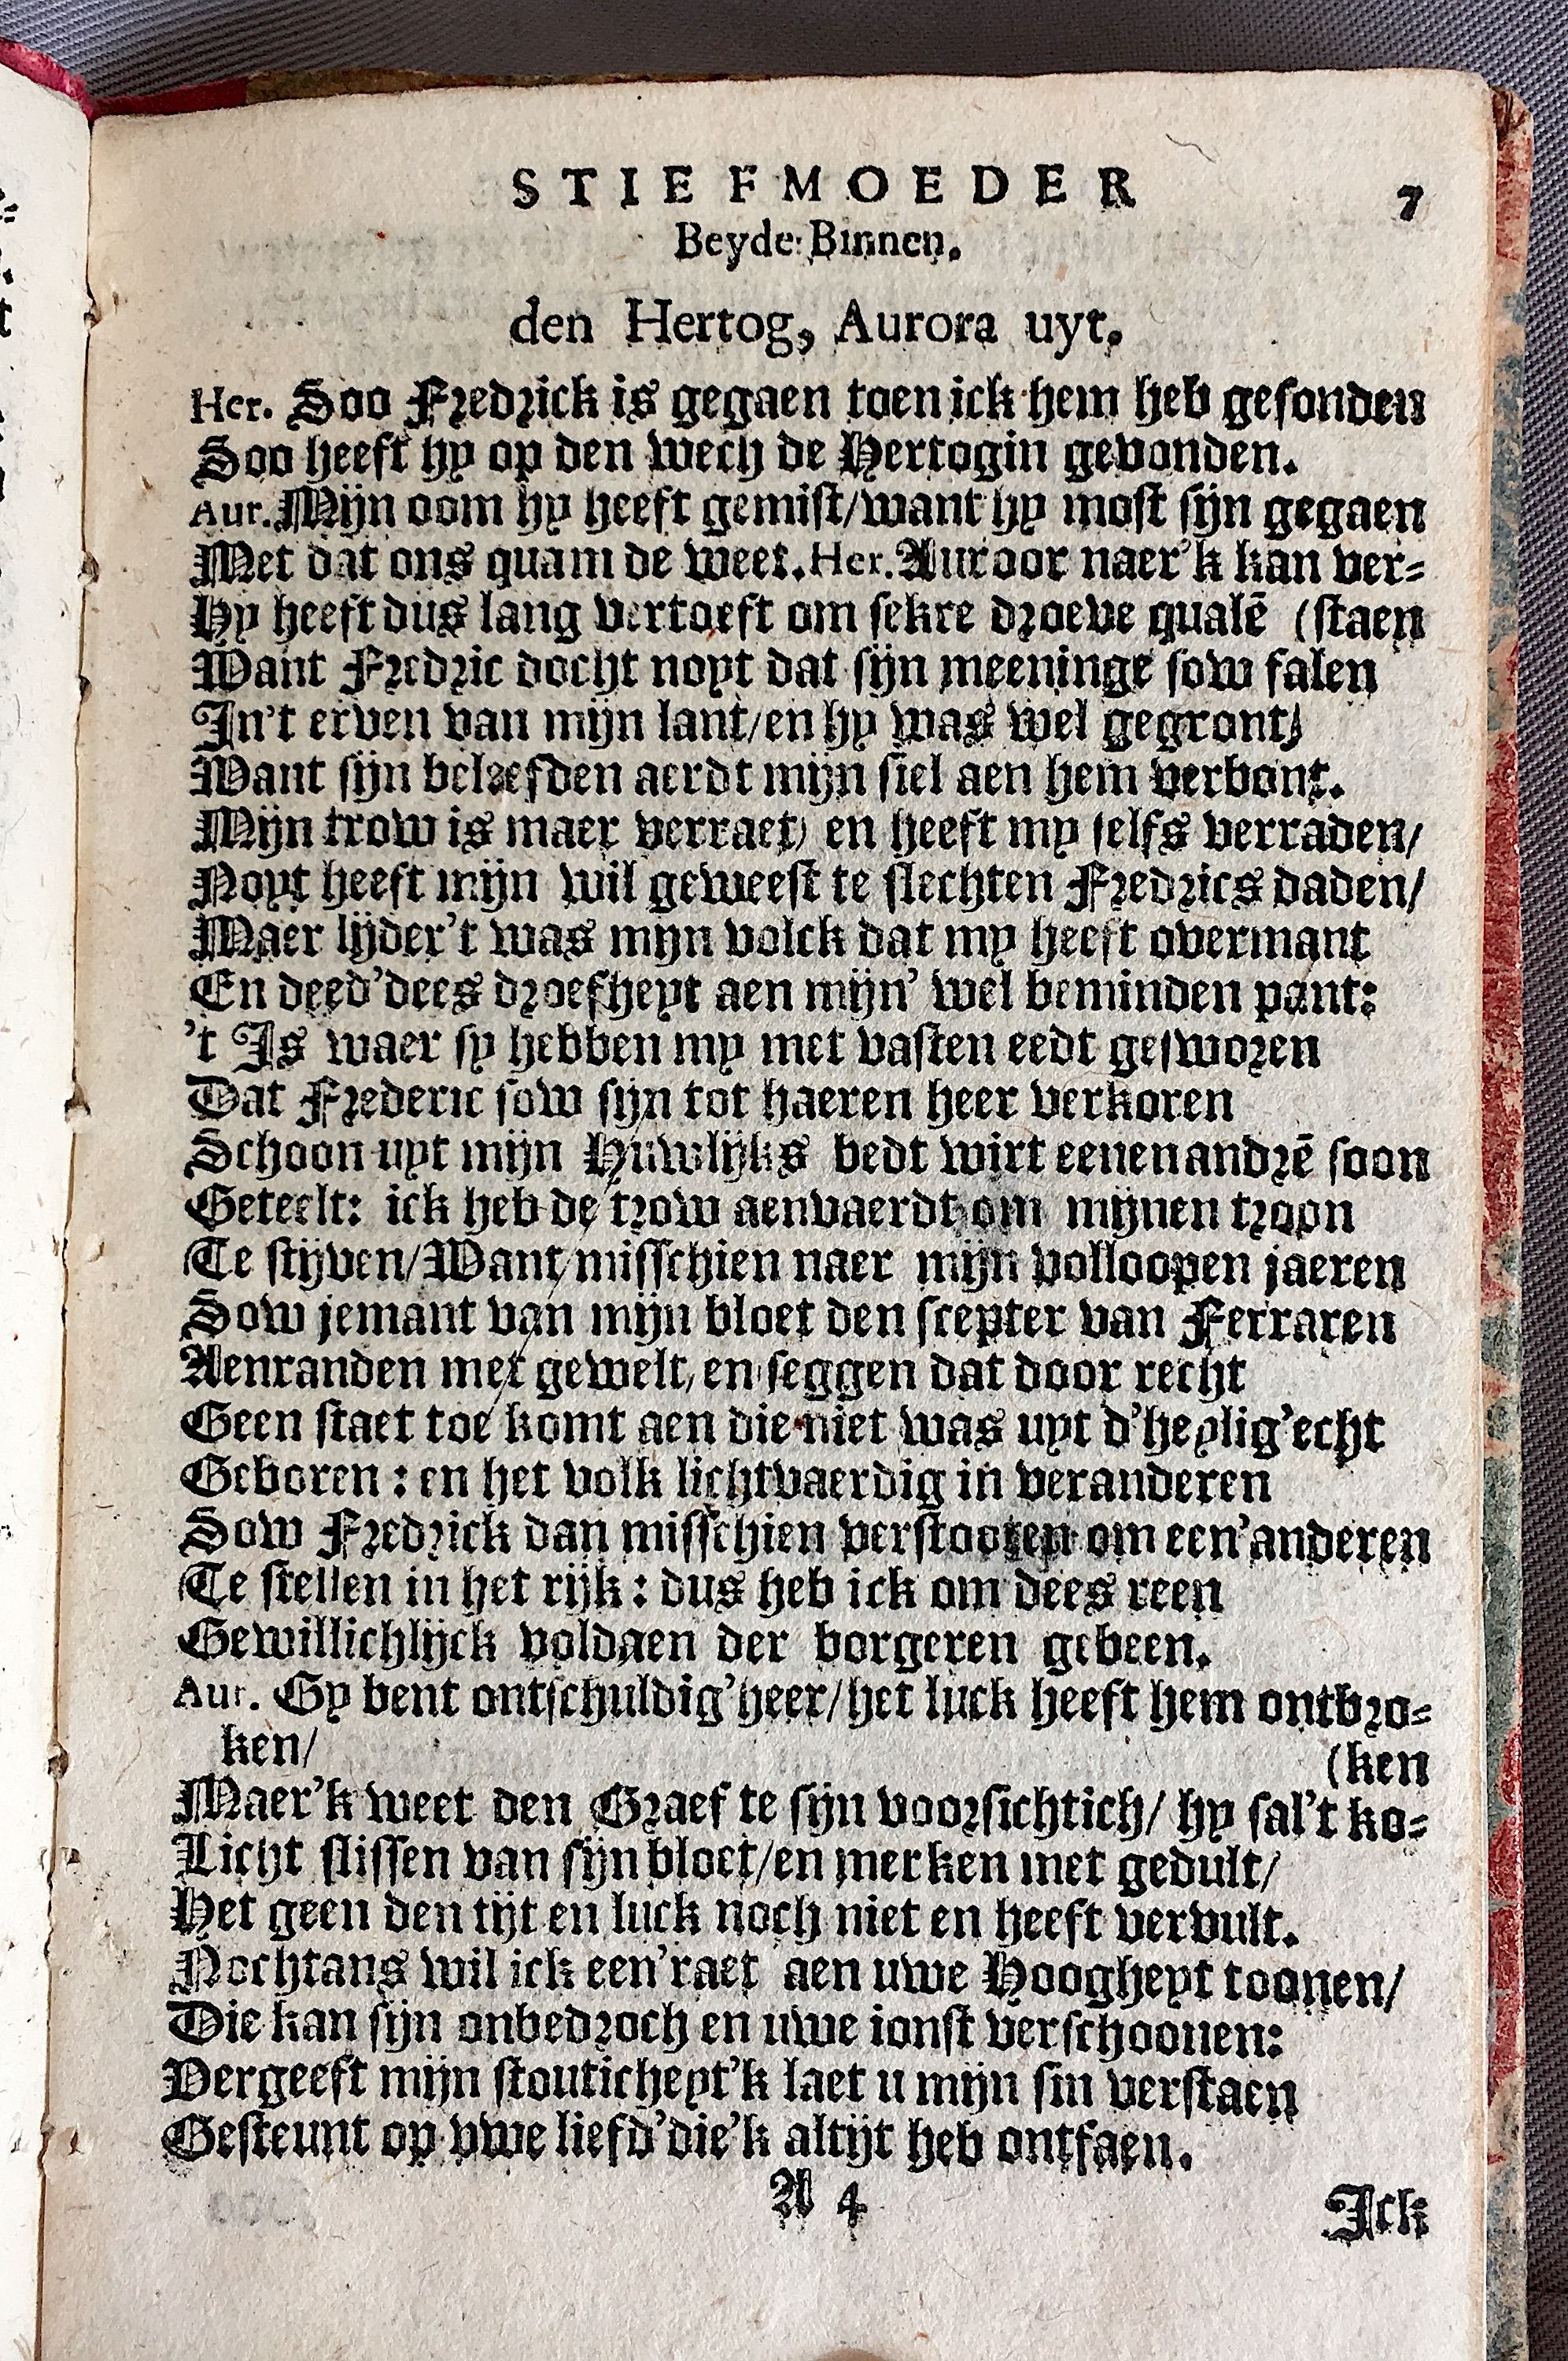 STIEFMOEDER 7
Beyde Binnen.
den Hertog, Aurora uyt.
Her. Soo Fredrick is gegaen toen ick hem heb gesonden
Soo heeft hy op den wech de Hertogin gevonden.
Aur. Mijn oom hy heeft gemist/want hy most sijn gegaen
Met dat ons quam de weet. Her. Auroor naer'k kan ver-
Hy heeft dus lang vertoeft om sekre droeve qualē (staen
Want Fredric docht noyt dat sijn meeninge sow falen
In't erven van mijn lant/en hy was wel gegront/
Want sijn beleefden aerdt mijn siel aen hem verbont.
Mijn trow is maer verraet/ en heeft my selfs verraden/
Noyt heeft mijn wil geweest te slechten Fredrics daden/
Maer lijder't was mijn volck dat my heeft overmant
En deed'dees droefheyt aen mijn' wel beminden pant:
't Is waer sy hebben my met vasten eedt gesworen
Dat Frederic sow sijn tot haeren heer verkoren
Schoon uyt mijn Huwlijks bedt wirt eenen andrē soon
Geteelt: ick heb de trow aenvaerdt om mijnen troon
Te stijven/Want misschien naer mijn volloopen jaeren
Sow jemant van mijn bloet den scepter van Ferraren
Aenranden met gewelt, en seggen dat door recht
Geen staet toe komt aen die niet was uyt d'heylig'echt
Geboren: en het volk lichtvaerdig in veranderen
Sow Fredrick dan misschien verstooten om een'anderen
Te stellen in het rijk: dus heb ick om dees reen
Gewillichlijck voldaen der borgeren gebeen.
Aur. Gy bent ontschuldig'heer/het luck heeft hem ontbro-
ken/ (ken
Maer'k weet den Graef te sijn voorsichtich/ hy sal't ko-
Licht slissen van sijn bloet/en merken met gedult/
Het geen den tijt en luck noch niet en heeft vervult.
Nochtans wil ick een'raet aen uwe Hoogheyt toonen/
Die kan sijn onbedroch en uwe ionst verschoonen:
Vergeeft mijn stouticheyt'k laet u mijn sin verstaen
Gesteunt op vwe liefd'die'k altijt heb ontfaen.
A 4 Ick